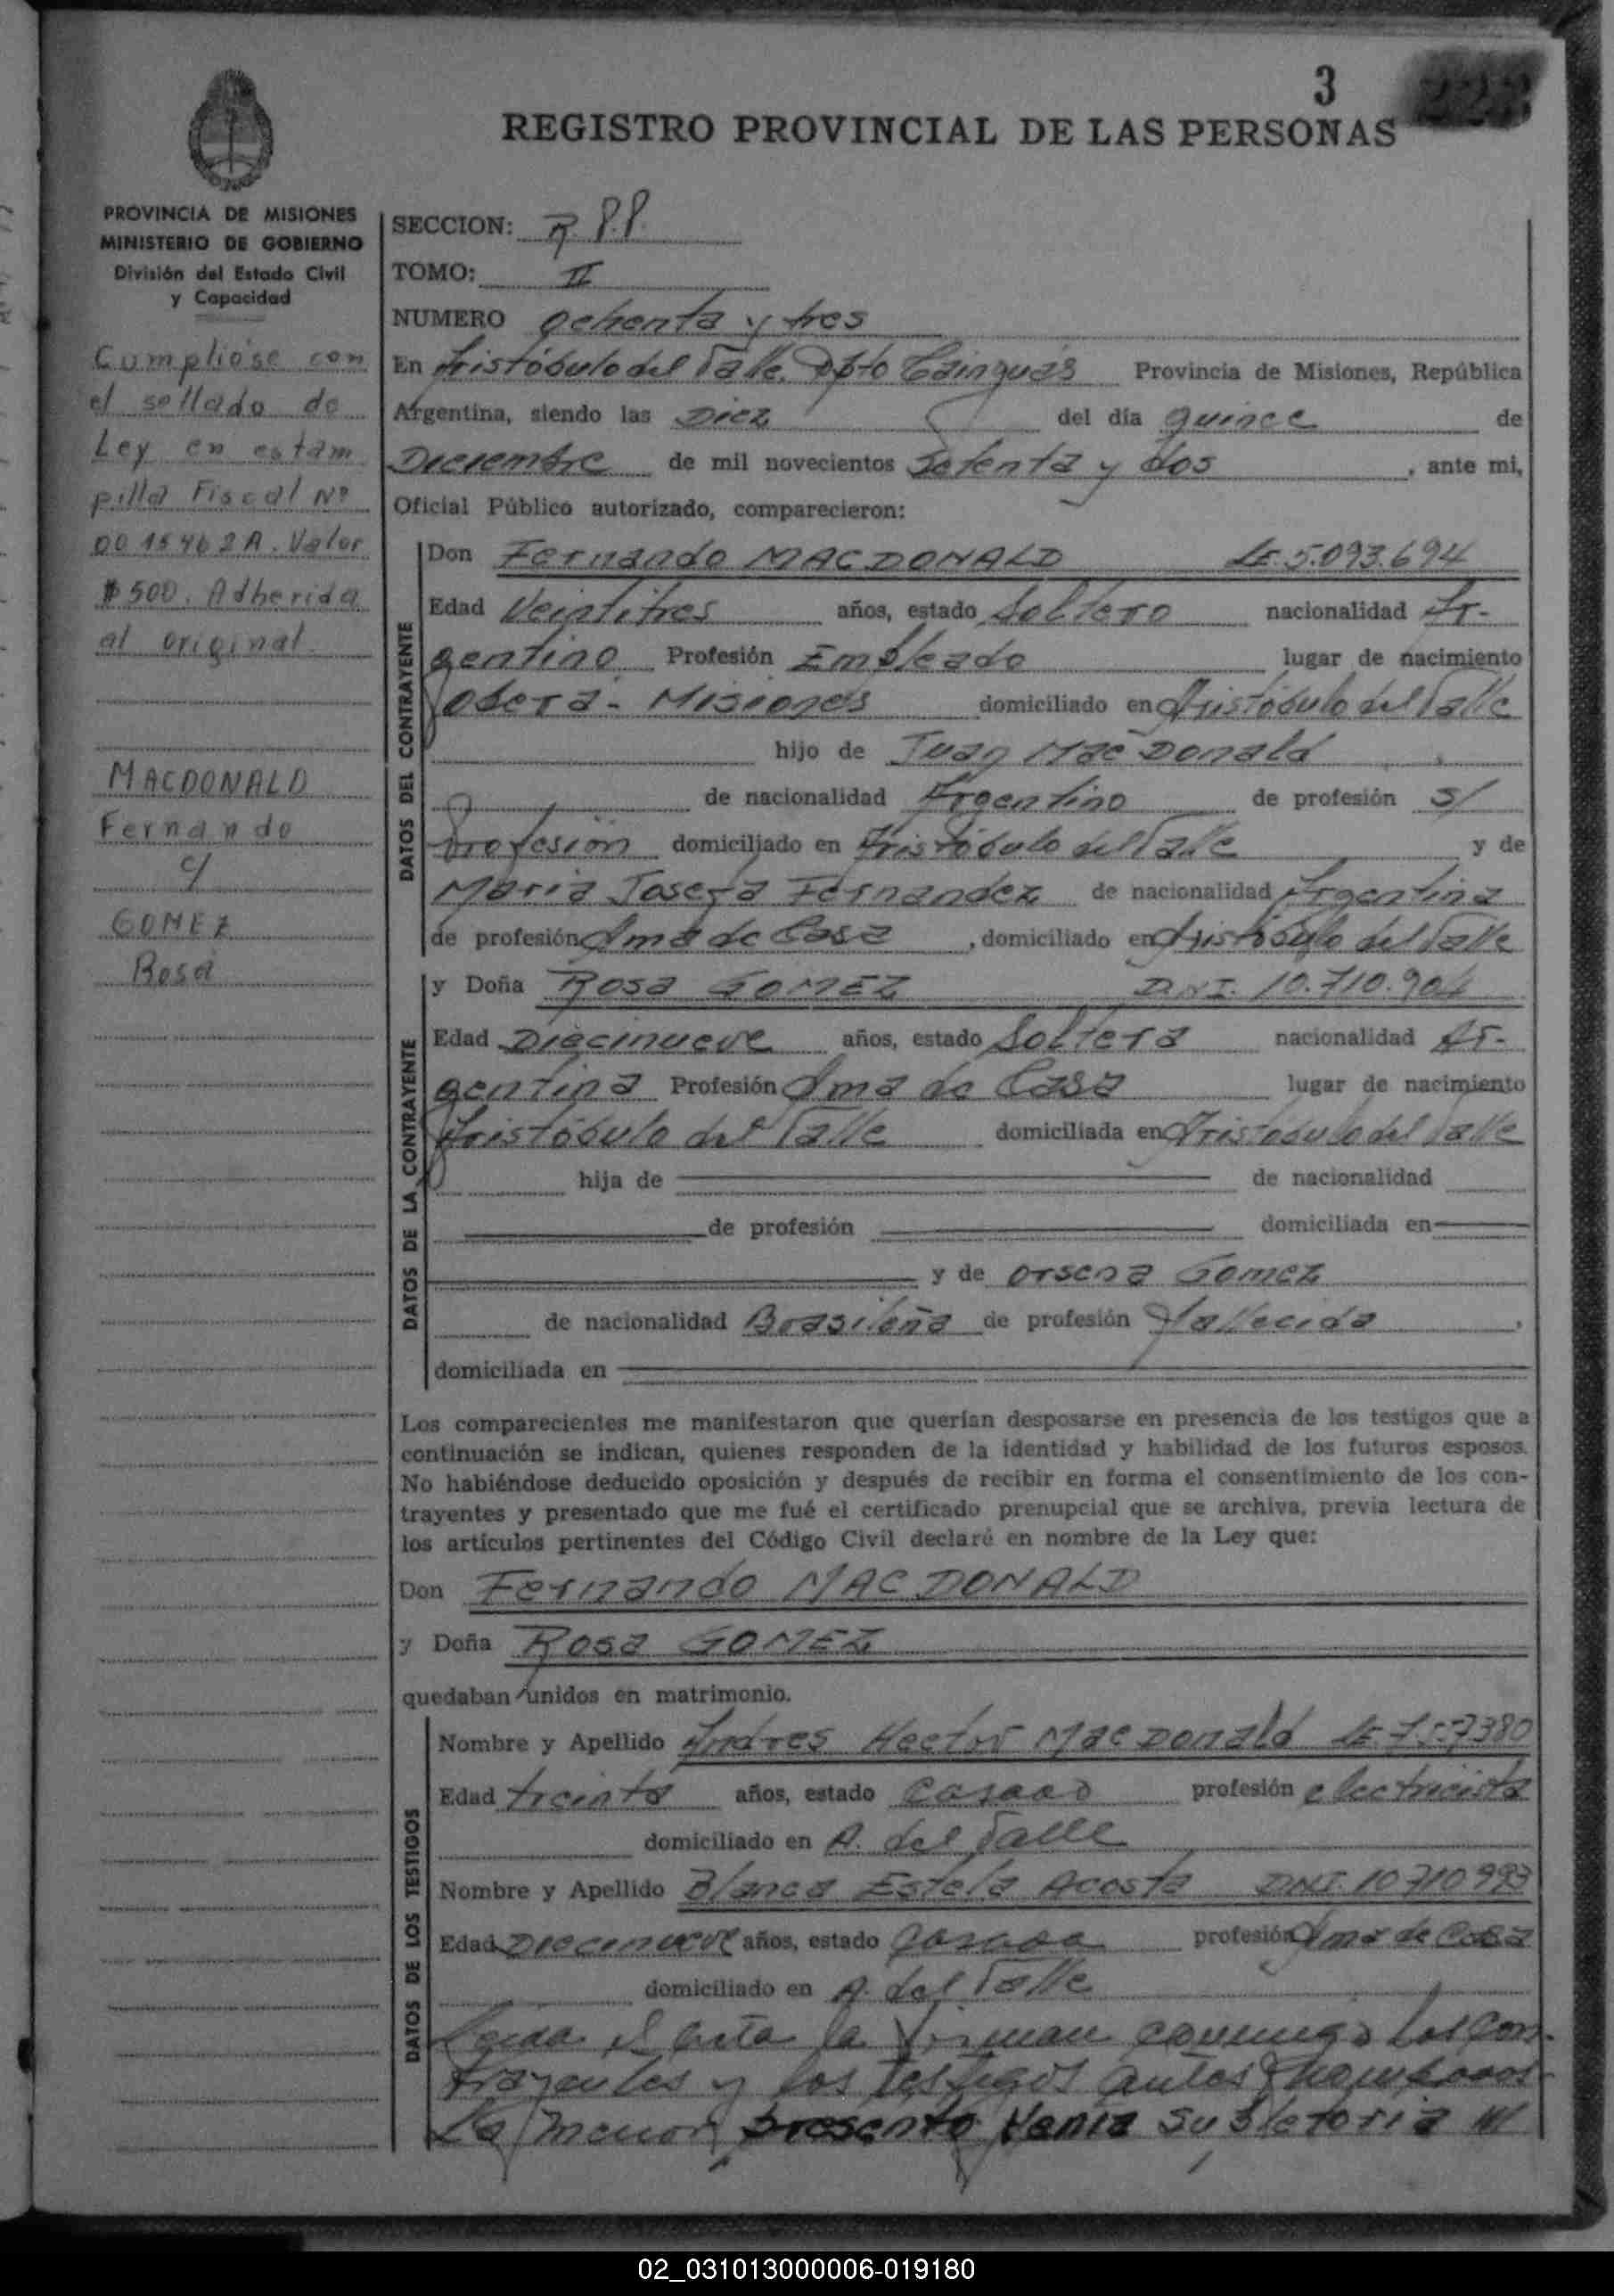 3
REGISTRO PROVINCIAL DE LAS PERSONAS
PROVINCIA DE MISIONES
MINISTERIO DE GOBIERNO
División del Estado Civil
y Capacidad
Cumplióse con
el sellado de
Ley en estam
pilla Fiscal Nº
0015462A. Valor
$500. Adherida
al original.
MACDONALD
Fernando
c/
GOMEZ
Rosa
SECCION: R.P.P.
TOMO: II
NUMERO ochenta y tres
En Aristóbulo del Valle, Dpto Cainguás Provincia de Misiones, República
Argentina, siendo las Diez del día quince de
Diciembre de mil novecientos Setenta y dos, ante mi,
Oficial Público autorizado, comparecieron:
DATOS DEL CONTRAYENTE
Don Fernando MACDONALD LE. 5.093.694
Edad Veintitres años, estado Soltero nacionalidad Ar-
gentino Profesión Empleado lugar de nacimiento
Oberá - Misiones domiciliado en Aristóbulo del Valle
hijo de Juan Mac Donald
de nacionalidad Argentino de profesión s/
profesión domiciliado en Aristóbulo del Valle y de
Maria Josefa Fernandez de nacionalidad Argentina
de profesión Ama de Casa, domiciliado en Aristóbulo del Valle
DATOS DE LA CONTRAYENTE
y Doña Rosa GOMEZ D.N.I. 10.710.904
Edad Diecinueve años, estado Soltera nacionalidad Ar-
gentina Profesión Ama de Casa lugar de nacimiento
Aristóbulo del Valle domiciliada en Aristóbulo del Valle
hija de de nacionalidad
de profesión domiciliada en
y de Orsena Gomez
de nacionalidad Brasileña de profesión fallecida,
domiciliada en
Los comparecientes me manifestaron que querían desposarse en presencia de los testigos que a
continuación se indican, quienes responden de la identidad y habilidad de los futuros esposos.
No habiéndose deducido oposición y después de recibir en forma el consentimiento de los con-
trayentes y presentado que me fué el certificado prenupcial que se archiva, previa lectura de
los artículos pertinentes del Código Civil declaré en nombre de la Ley que:
Don Fernando MAC DONALD
y Doña Rosa GOMEZ
quedaban unidos en matrimonio.
DATOS DE LOS TESTIGOS
Nombre y Apellido Andres Hector Mac Donald LE.
Edad treinta años, estado casado profesión electricista
domiciliado en A. del Valle
Nombre y Apellido Blanca Estela Acosta DNI. 10710993
Edad Diecinueve años, estado casada profesión Ama de Casa
domiciliado en A. del Valle
Leida el acta la firman conmigo los con-
trayentes y los testigos antes nombrados
La menor presentó Venia Supletoria
02_031013000006-019180